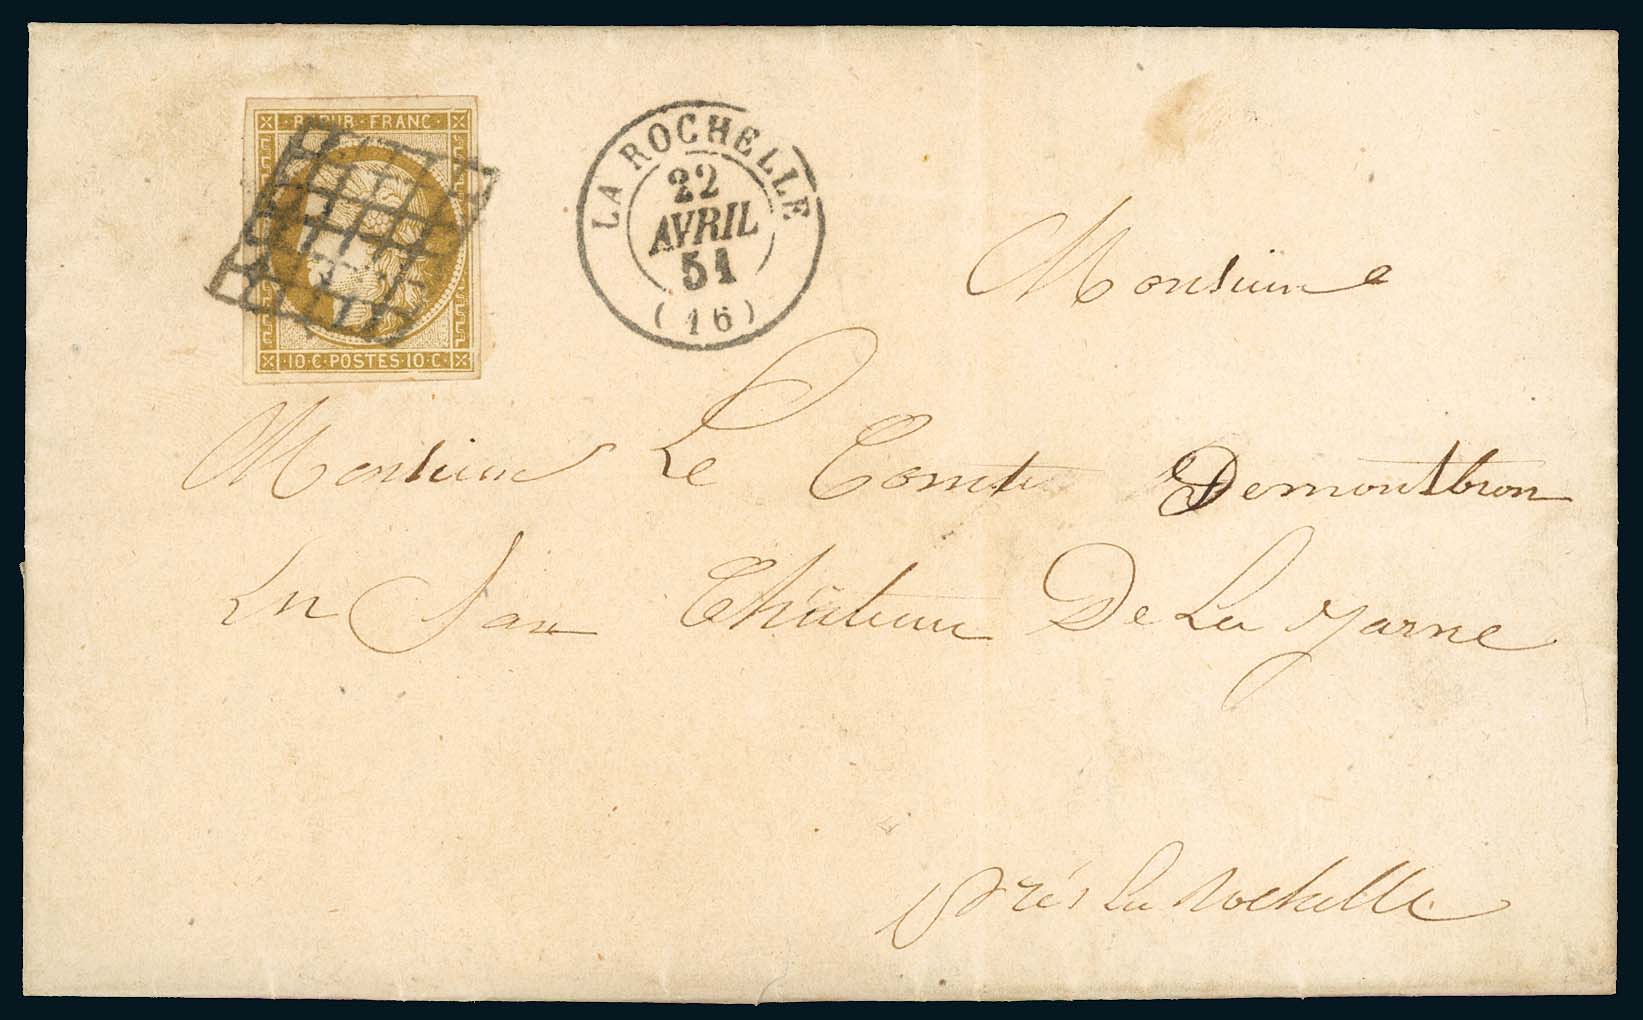 REPUB · FRANC ·
· 10 · C · POSTES · 10 · C ·
LA ROCHELLE
22
AVRIL
51
(16)
Monsieur
Monsieur Le Comte Demontbron
En Son Château De La Jarne
près La Rochelle